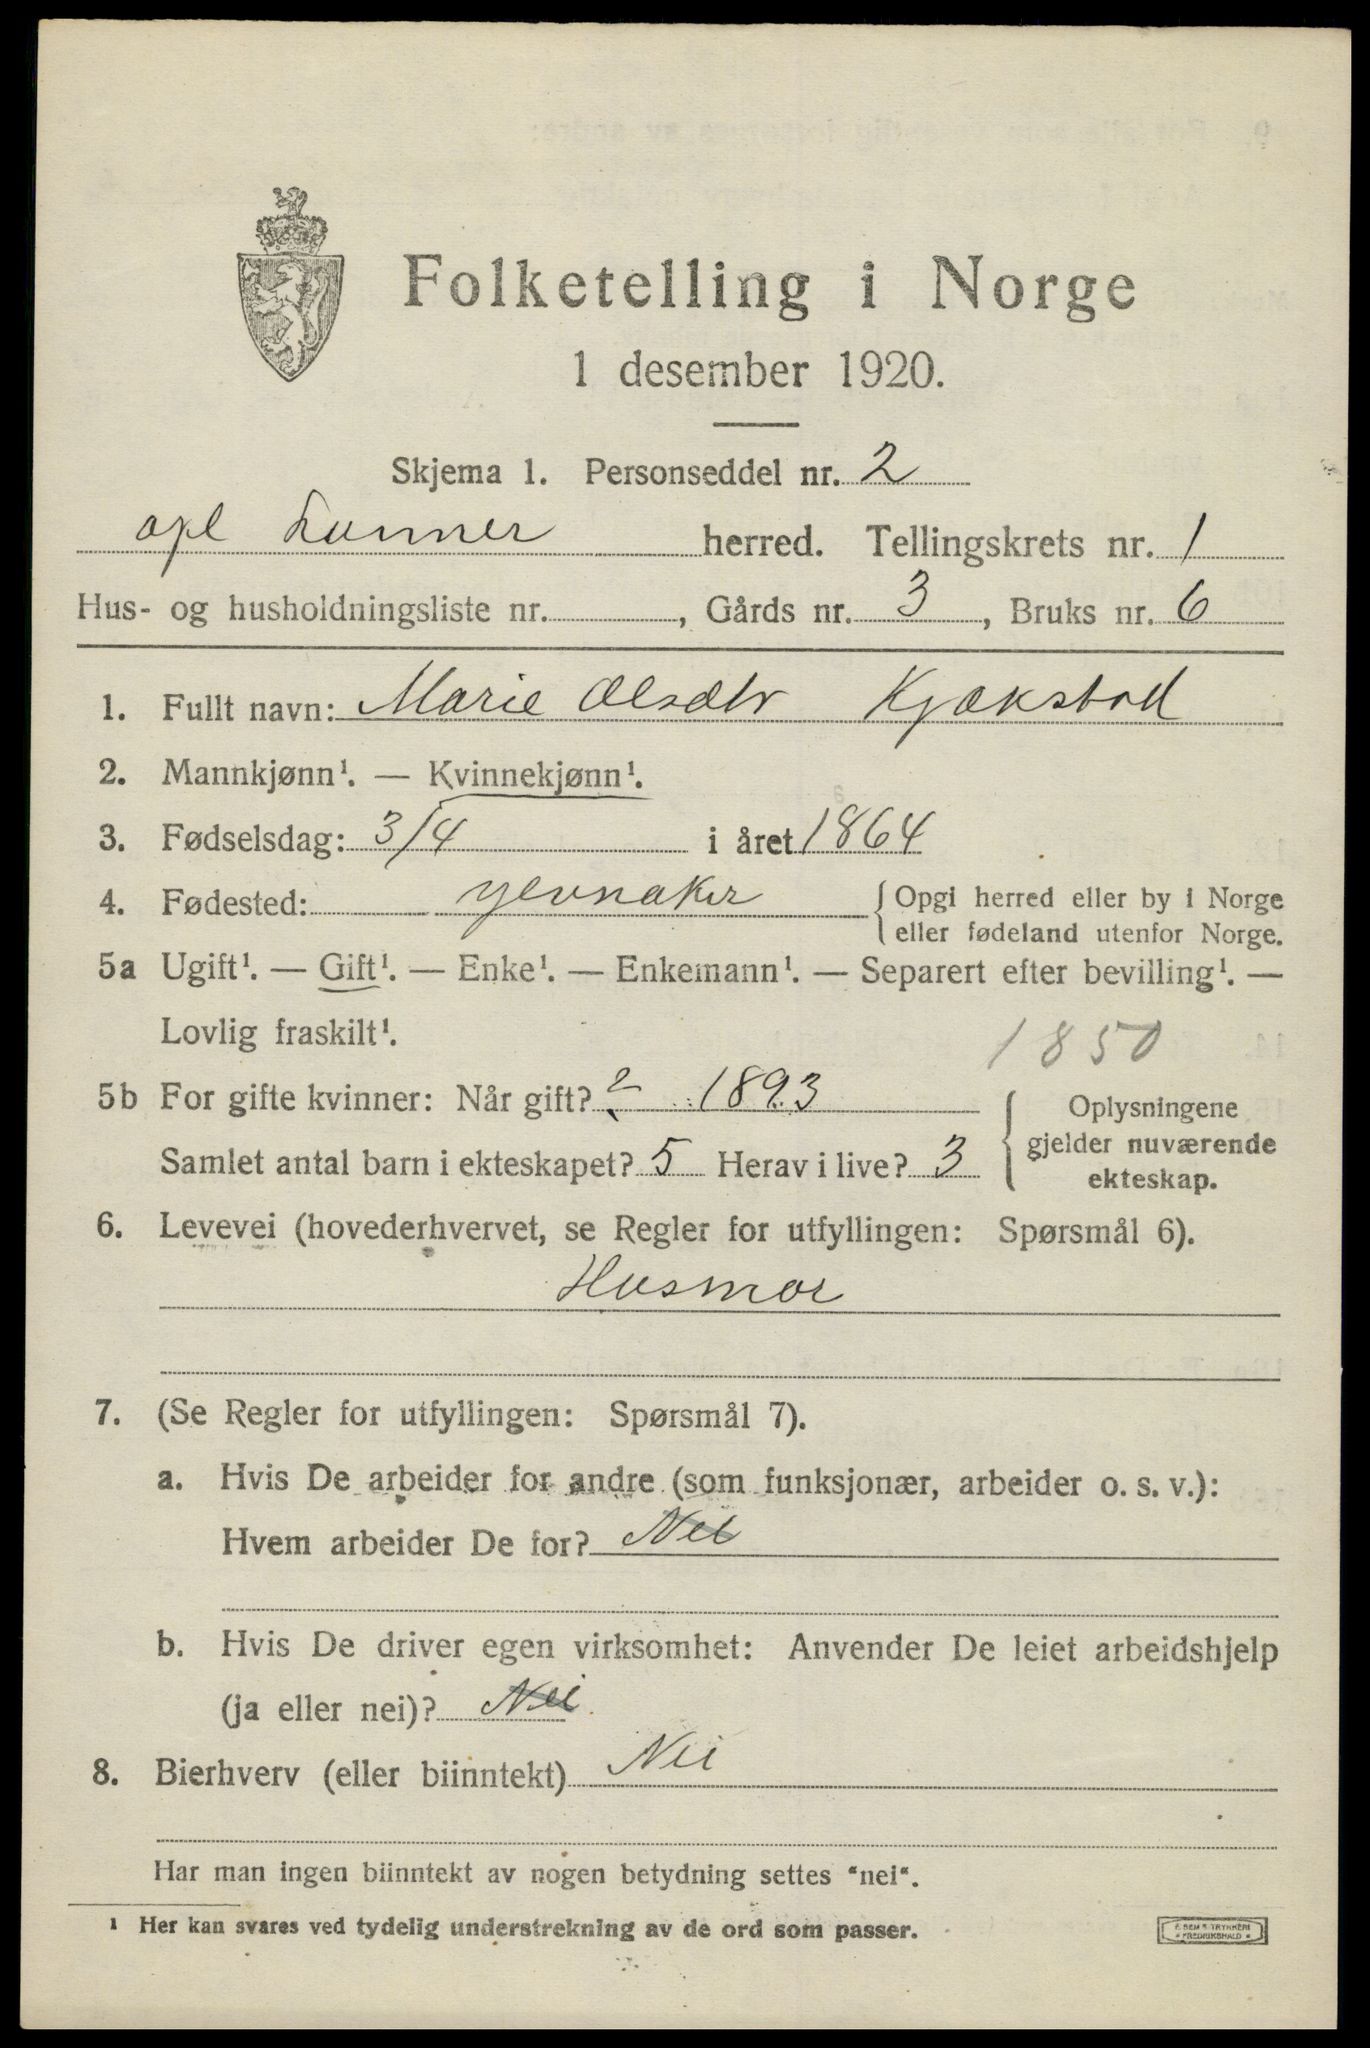 Folketelling i Norge
1 desember 1920.
Skjema 1. Personseddel nr. 2
opl Lunner herred. Tellingskrets nr. 1
Hus- og husholdningsliste nr. , Gårds nr. 3, Bruks nr. 6
1. Fullt navn: Marie Olsdtr Kjækstad
2. Mannkjønn¹. — Kvinnekjønn¹.
3. Fødselsdag: 3/4 i året 1864
4. Fødested: Jevnaker {Opgi herred eller by i Norge
eller fødeland utenfor Norge.
5a Ugift¹. — Gift¹. — Enke¹. — Enkemann¹. — Separert efter bevilling¹. —
Lovlig fraskilt¹.
1850
5b For gifte kvinner: Når gift? ? 1893
Samlet antal barn i ekteskapet? 5 Herav i live? 3
{Oplysningene
gjelder nuværende
ekteskap.
6. Levevei (hovederhvervet, se Regler for utfyllingen: Spørsmål 6).
Husmor
7. (Se Regler for utfyllingen: Spørsmål 7).
a. Hvis De arbeider for andre (som funksjonær, arbeider o. s. v.):
Hvem arbeider De for? Nei
b. Hvis De driver egen virksomhet: Anvender De leiet arbeidshjelp
(ja eller nei)? Nei
8. Bierhverv (eller biinntekt) Nei
Har man ingen biinntekt av nogen betydning settes "nei".
¹ Her kan svares ved tydelig understrekning av de ord som passer.
E SEM'S TRYKKERI
FREDRIKSHALD